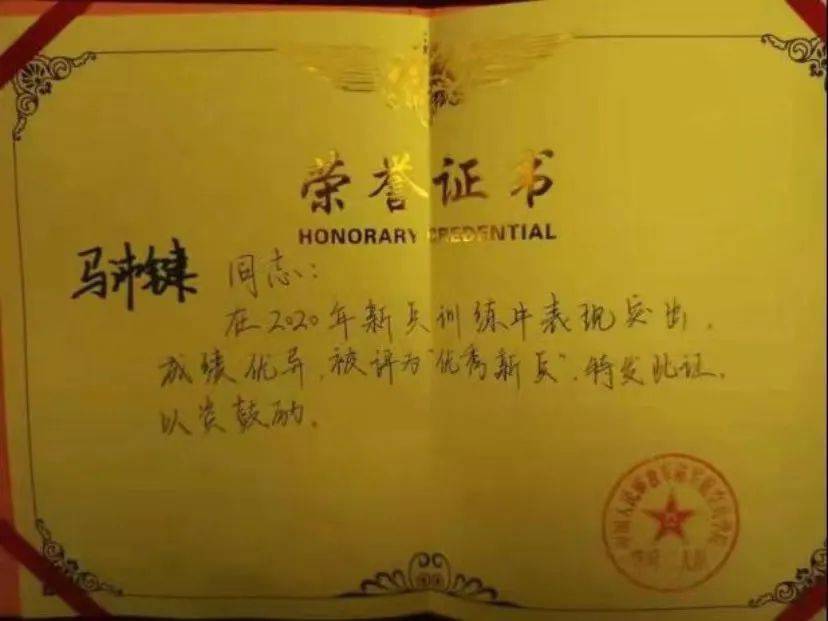 荣誉证书
HONORARY CREDENTIAL
马冲 同志：
在2020年新兵训练中表现突出，
成绩优异，被评为“优秀新兵”，特发此证，
以资鼓励。
中国人民解放军
大队